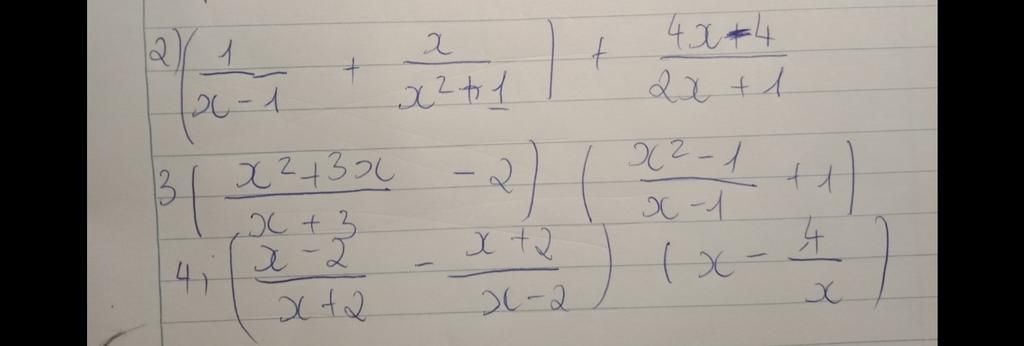 2) (1/(x-1) + x/(x²+1)) + (4x-4)/(2x+1)
3 ((x²+3x)/(x+3) - 2) ((x²-1)/(x-1) + 1)
4; ((x-2)/(x+2) - (x+2)/(x-2)) (x - 4/x)